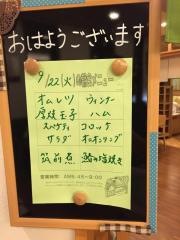 おはようございます
9/22(火)朝食メニュー
オムレツ ウィンナー
厚焼玉子 ハム
スパゲティ コロッケ
サラダ オニオンリング
筑前煮 鮭の塩焼き
営業時間 AM6:45～9:00